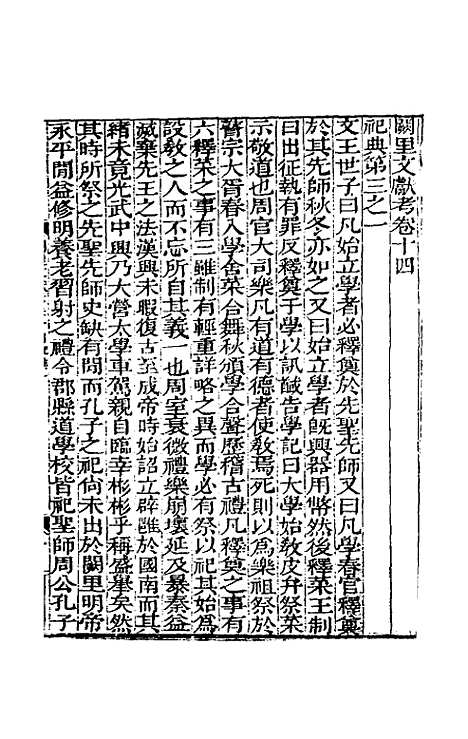 闕里文獻考卷十四
祀典第三之一
文王世子曰凡始立學者必釋奠於先聖先師又曰凡學春官釋奠
於其先師秋冬亦如之又曰始立學者旣興器用幣然後釋菜王制
曰出征執有罪反釋奠于學以訊馘告學記曰大學始敎皮弁祭菜
示敬道也周官大司樂凡有道有德者使敎焉死則以爲樂祖祭於
瞽宗大胥春入學舍菜合舞秋頒學合聲歷稽古禮凡釋奠之事有
六釋菜之事有三雖制有輕重詳略之異而學必有祭以祀其始爲
設敎之人而不忘所自其義一也周室衰微禮樂崩壞延及暴秦益
滅棄先王之法漢興未暇復古至成帝時始詔立辟雝於國南而其
緒未竟光武中興乃大營太學車駕親自臨幸彬彬乎稱盛舉矣然
其時所祭之先聖先師史缺有間而孔子之祀尙未出於闕里明帝
永平閒益修明養老習射之禮令郡縣道學校皆祀聖師周公孔子